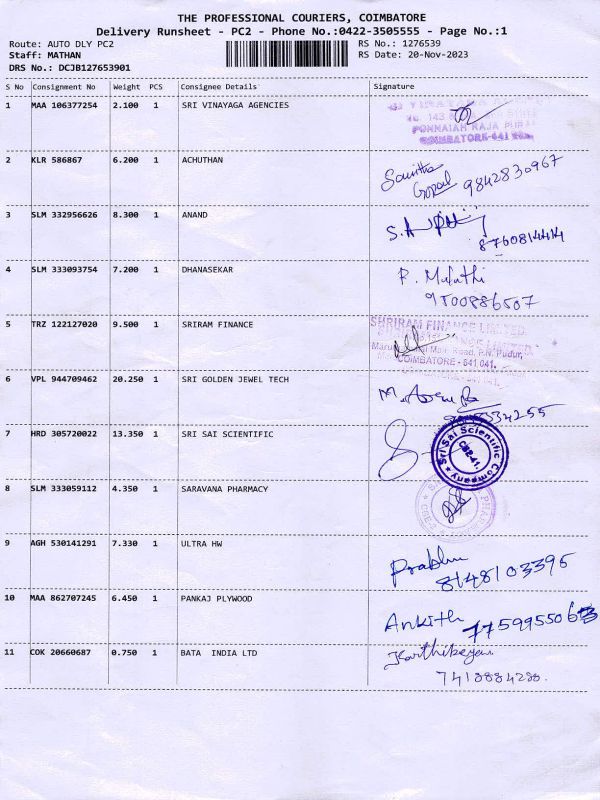 THE PROFESSIONAL COURIERS, COIMBATORE
Delivery Runsheet - PC2 - Phone No.:0422-3505555 - Page No.:1
Route: AUTO DLY PC2 RS No.: 1276539
Staff: MATHAN RS Date: 20-Nov-2023
DRS No.: DCJB127653901
S No Consignment No Weight PCS Consignee Details Signature
1 MAA 106377254 2.100 1 SRI VINAYAGA AGENCIES
PONNAIAH RAJA PURAM
COIMBATORE-641
2 KLR 586867 6.200 1 ACHUTHAN
Gopal 9842830967
3 SLM 332956626 8.300 1 ANAND
8760814414
4 SLM 333093754 7.200 1 DHANASEKAR
9500886507
5 TRZ 122127020 9.500 1 SRIRAM FINANCE
SHRIRAM FINANCE LIMITED.
Road, P.N. Pudur,
COIMBATORE - 641 041.
6 VPL 944709462 20.250 1 SRI GOLDEN JEWEL TECH
7 HRD 305720022 13.350 1 SRI SAI SCIENTIFIC
Sri Sai Scientific Company
CBE-41.
8 SLM 333059112 4.350 1 SARAVANA PHARMACY
9 AGH 530141291 7.330 1 ULTRA HW
Prabhu
8148103395
10 MAA 862707245 6.450 1 PANKAJ PLYWOOD
Ankith
11 COK 20660687 0.750 1 BATA INDIA LTD
Karthikeyan